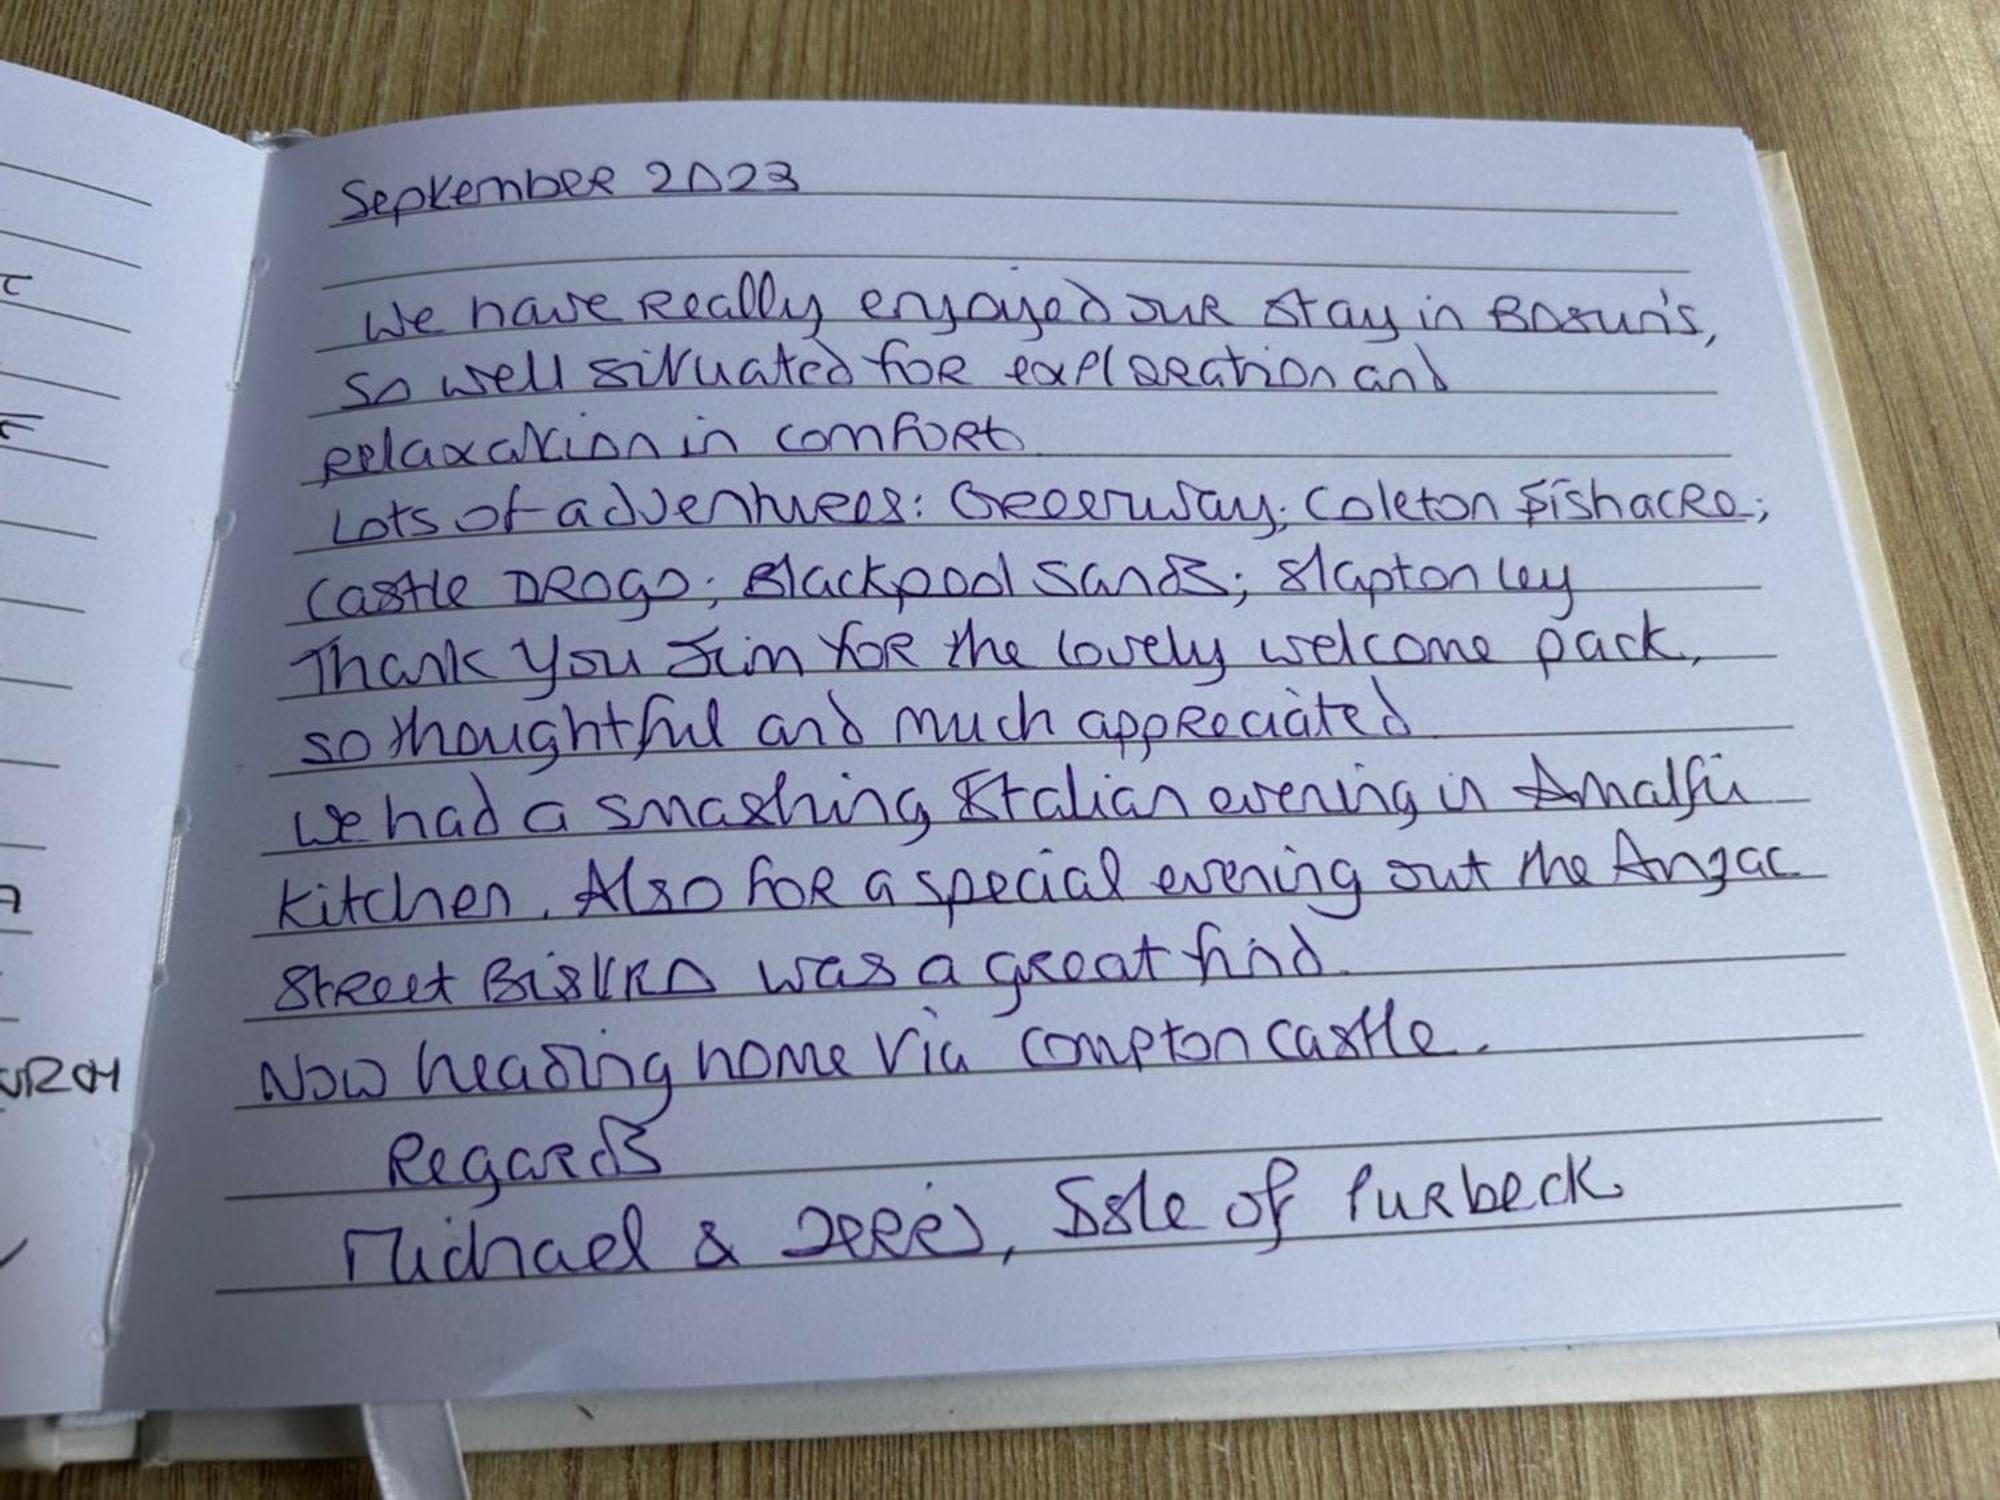 September 2023
We have really enjoyed our stay in Bosun's,
so well situated for exploration and
relaxation in comfort
Lots of adventures: Greenway; Coleton Fishacre;
Castle Drogo; Blackpool Sands; Slapton Ley
Thank you Jim for the lovely welcome pack,
so thoughtful and much appreciated
We had a smashing Italian evening in Amalfi
Kitchen. Also for a special evening out the Anzac
Street Bistro was a great find.
Now heading home via Compton Castle.
Regards
Michael & , Isle of Purbeck